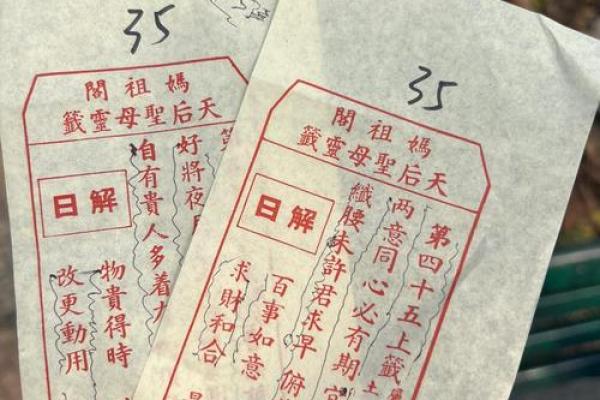 35
媽祖閣
天后聖母靈籤
好將夜
自有貴人多着
解日
物貴得時
改更動用
35
媽祖閣
天后聖母靈籤
第四十五上籤
土
两意同心必有期
纖腰未許君求早
解日
百事如意
求財和合